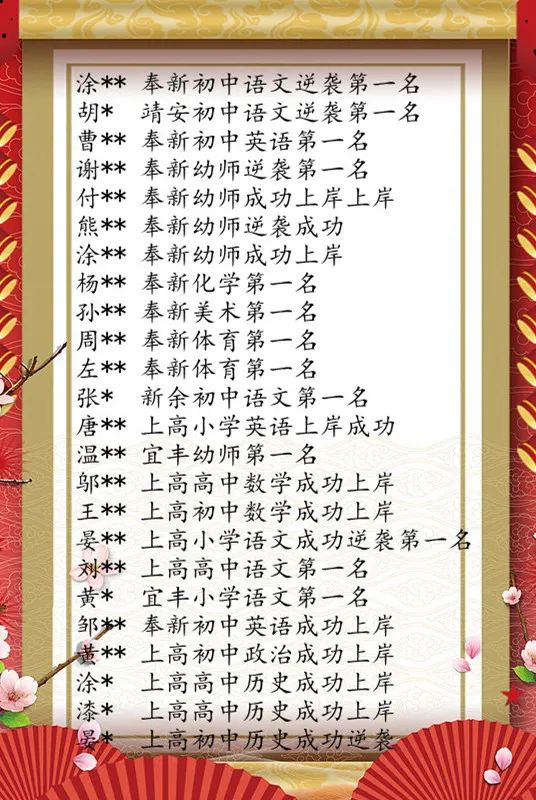 涂** 奉新初中语文逆袭第一名
胡* 靖安初中语文逆袭第一名
曹** 奉新初中英语第一名
谢** 奉新幼师逆袭第一名
付** 奉新幼师成功上岸上岸
熊** 奉新幼师逆袭成功
涂** 奉新幼师成功上岸
杨** 奉新化学第一名
孙** 奉新美术第一名
周** 奉新体育第一名
左** 奉新体育第一名
张* 新余初中语文第一名
唐** 上高小学英语上岸成功
温** 宜丰幼师第一名
邬** 上高高中数学成功上岸
王** 上高初中数学成功上岸
晏** 上高小学语文成功逆袭第一名
刘** 上高高中语文第一名
黄* 宜丰小学语文第一名
邹** 奉新初中英语成功上岸
黄** 上高初中政治成功上岸
涂* 上高高中历史成功上岸
漆* 上高高中历史成功上岸
晏* 上高初中历史成功逆袭